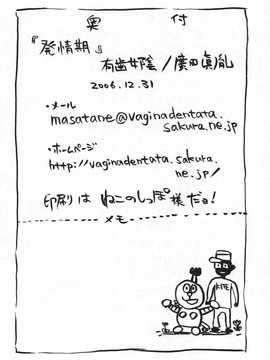 奥付
『発情期』
有歯女陰/廣田眞胤
2006.12.31
・メール
masatane@vaginadentata.
sakura.ne.jp
・ホームページ
http://vaginadentata.sakura.
ne.jp/
印刷は ねこのしっぽ様だヨ!
メモ